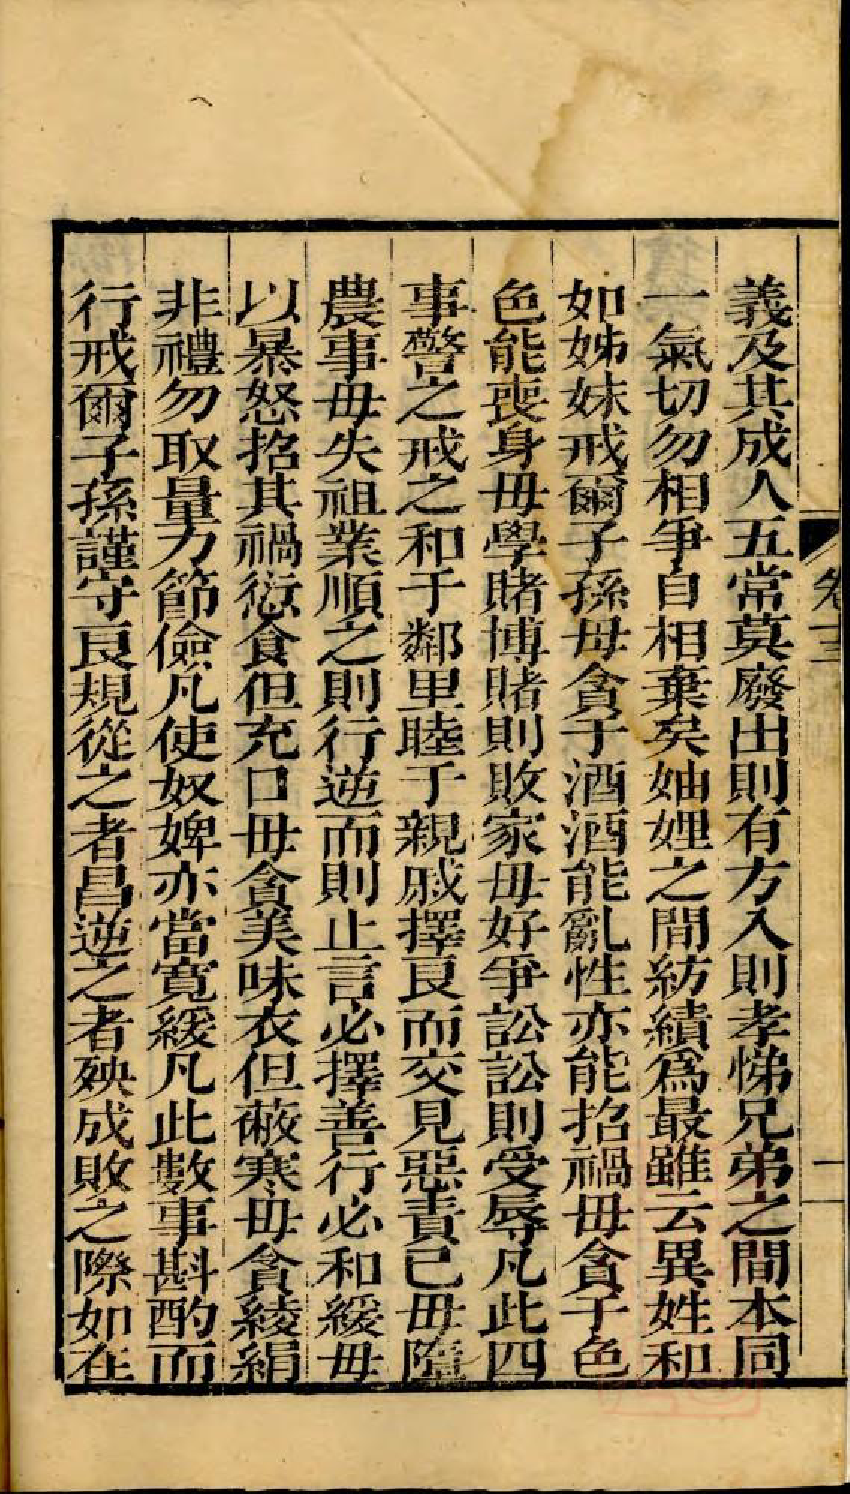 義及其成人五常莫廢出則有方入則孝悌兄弟之間本同
一氣切勿相爭自相棄矣妯娌之間紡績爲最雖云異姓和
如姊妹戒爾子孫毋貪于酒酒能亂性亦能招禍毋貪于色
色能喪身毋學賭博賭則敗家毋好爭訟訟則受辱凡此四
事警之戒之和于鄰里睦于親戚擇良而交見惡責已毋墮
農事毋失祖業順之則行逆而則止言必擇善行必和緩毋
以暴怒招其禍愆食但充口毋貪美味衣但蔽寒毋貪綾絹
非禮勿取量力節儉凡使奴婢亦當寬緩凡此數事斟酌而
行戒爾子孫謹守良規從之者昌逆之者殃成敗之際如在